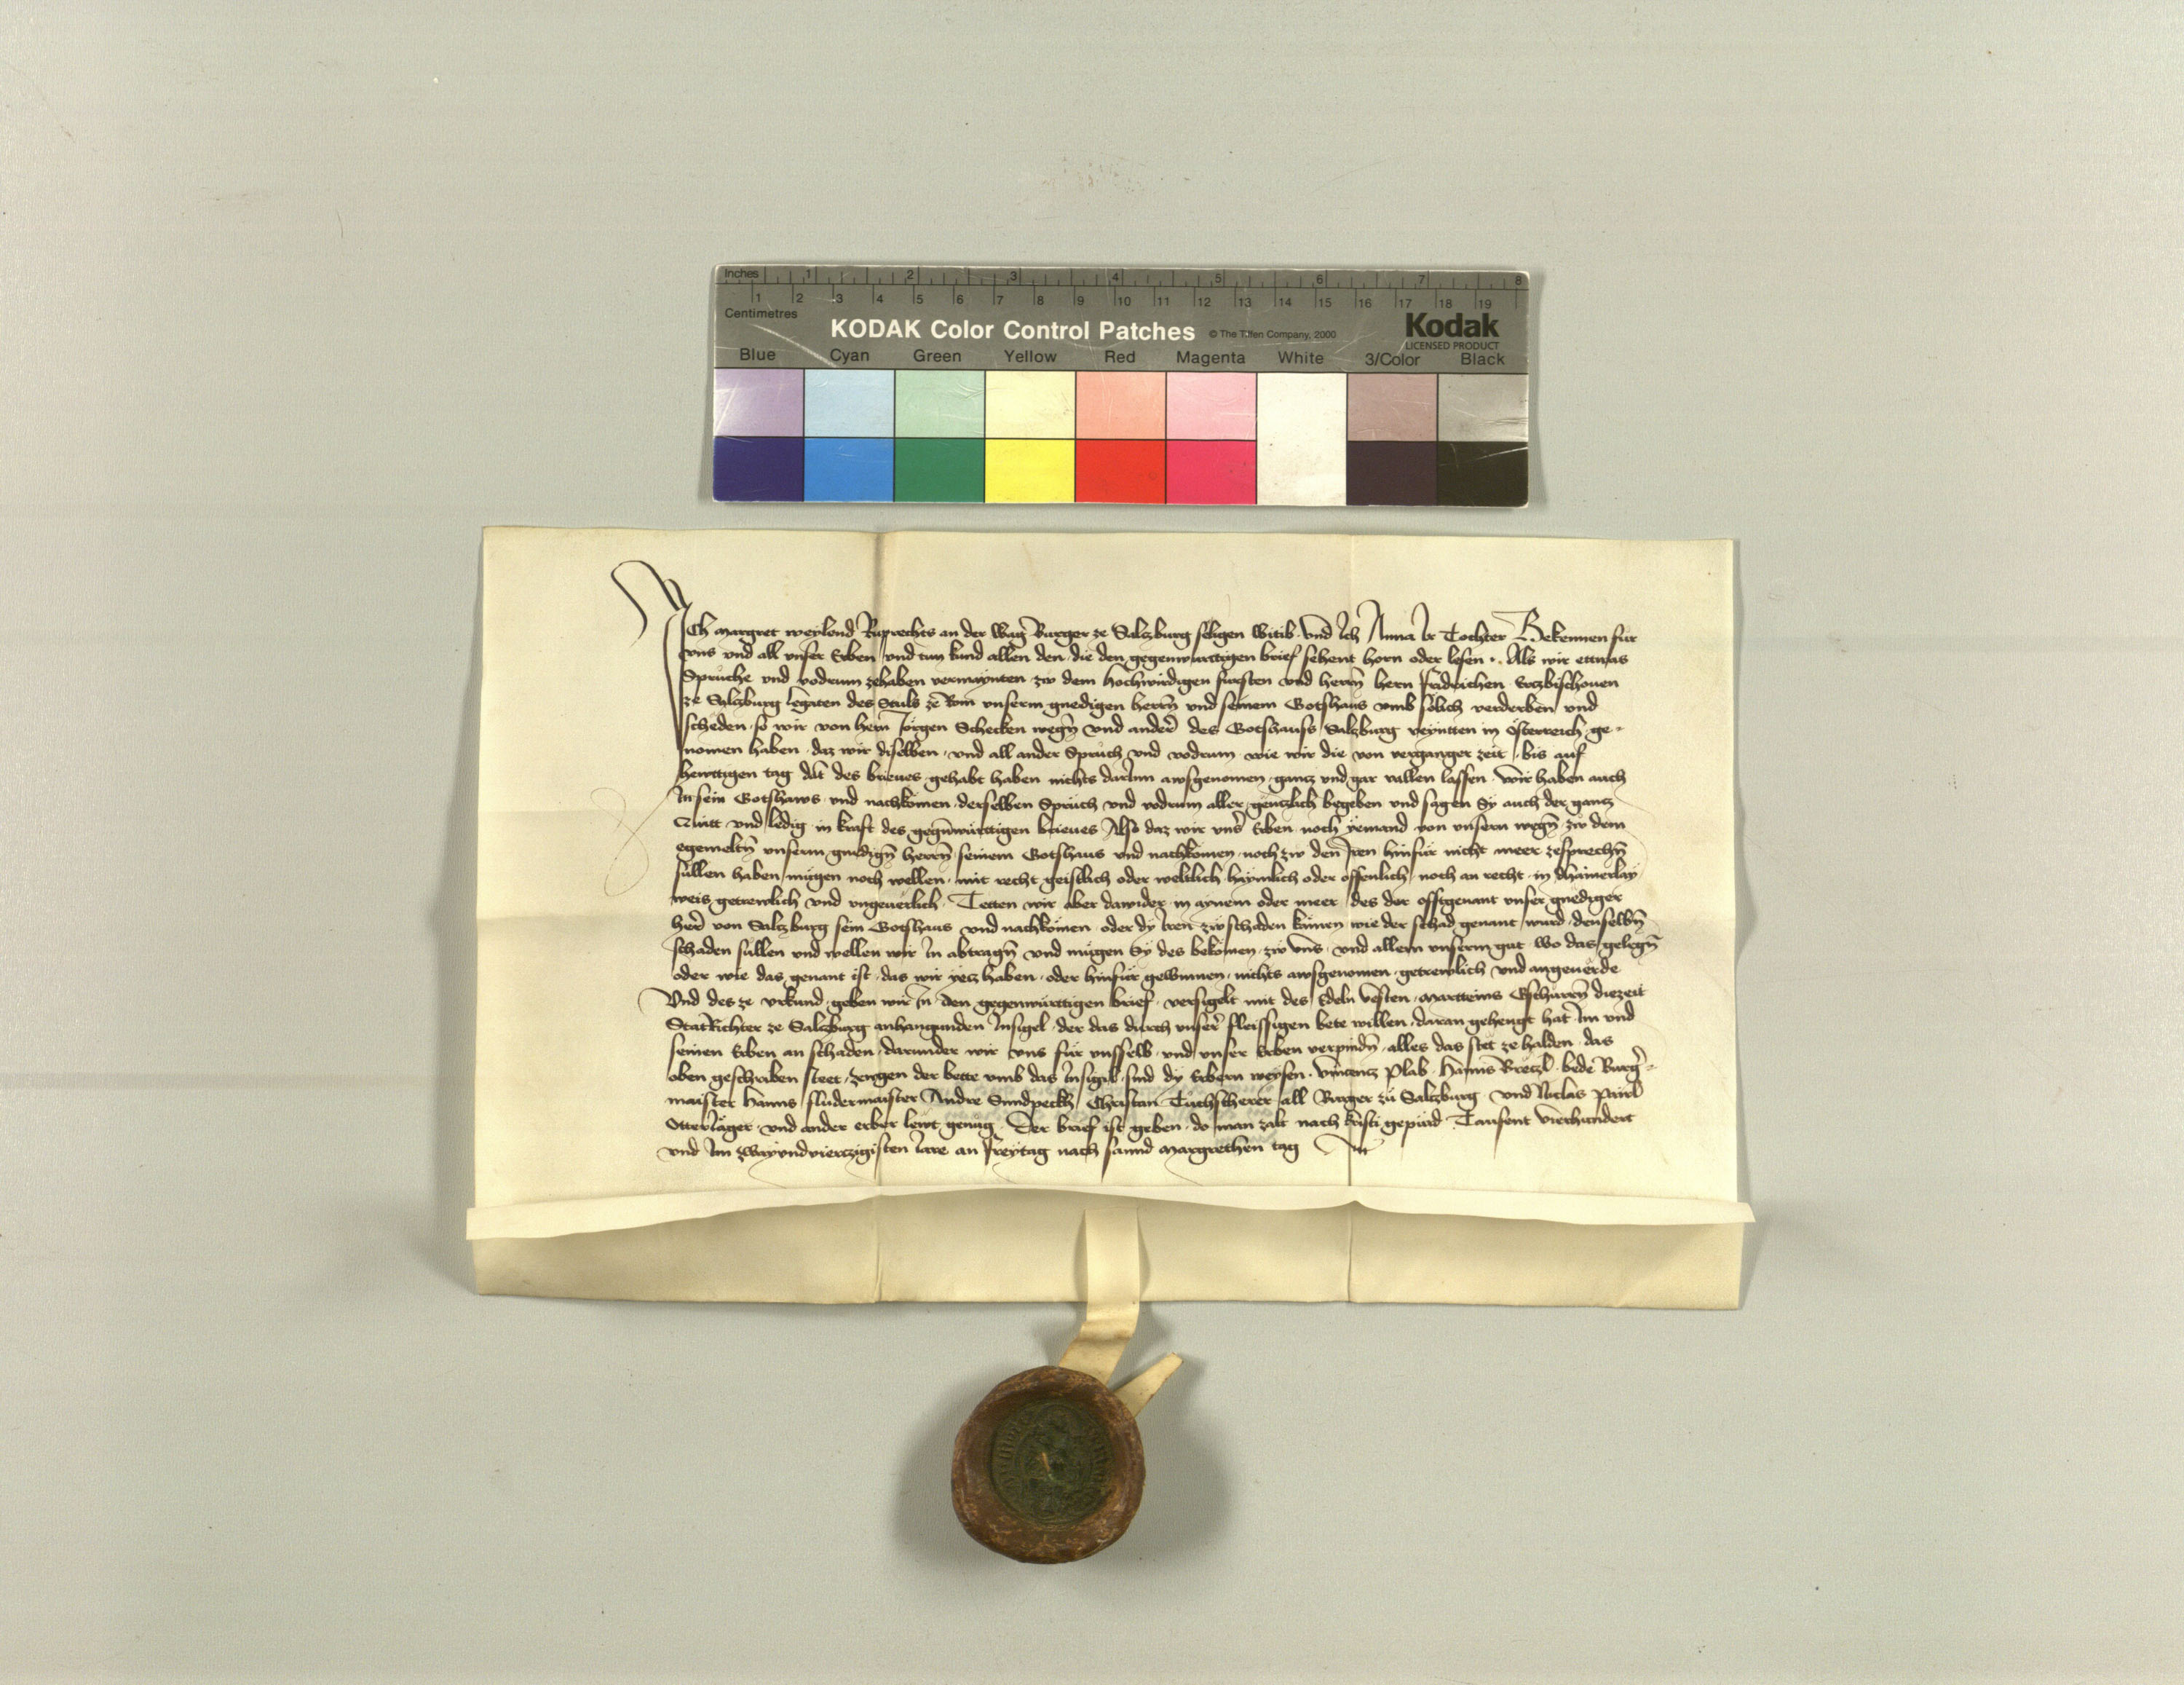 Inches 1 2 3 4 5 6 7 8
1 2 3 4 5 6 7 8 9 10 11 12 13 14 15 16 17 18 19
Centimetres
KODAK Color Control Patches © The Tiffen Company, 2000 Kodak
LICENSED PRODUCT
Blue Cyan Green Yellow Red Magenta White 3/Color Black
Ich Margret weylend Ruprechts an der Wag Burger ze Salzburg seligen witib · vnd Ich Anna Ir Tochter Bekennen für
vns vnd all vnser Erben vnd tun kund allen den · die den gegenwurttigen brief sehent horn oder lesen · Als wir ettwas
Sprüche vnd vodrum zehaben vermaynten zw dem hochwirdigen fursten vnd herrn hern Fridreichen Ertzbischouen
ze Salzburg legaten des Stuls ze Rom vnserm gnedigen herrn vnd seinem Gotshaus vmb sölich verderben vnd
scheden · so wir von hern Jörgen Schecken wegn vnd ander des Gotshauss Salzburg veyntten in Österreich ge-
nomen haben · daz wir diselben · vnd all ander Sprüch vnd vodrum wie wir die von verganger zeit · bis auf
hewttigen tag dat des brieues gehabt haben nichts darInn awsgenomen · ganz vnd gar vallen lassen · wir haben auch
In sein Gotshaws · vnd nachkömen · derselben Sprüch vnd vodrum aller gentzlich begeben vnd sagen Sy auch der gantz
Quitt · vnd ledig · in kraft des gegnwürttigen brieues Also daz wir vnser Erben noch yemand von vnsern wegn zw dem
egemeltn vnserm gnedign herrn · seinem Gotshaus vnd nachkömen · noch zw den Iren hinfür nicht meer zesprechn
süllen haben mügen noch wellen · mit recht geistlich oder weltlich haymlich oder offenlich · noch an recht · in dhainerlay
weis getrewlich vnd vngeuerlich · Tetten wir aber dawider in aynem oder meer · des der offtgenant vnser gnediger
herr von Salzburg sein Gotshaus vnd nachkömen · oder dy Iren zw schaden kämen wie der schad genant wurd · denselbn
schaden süllen vnd wellen wir In abtragn vnd mügen Sy des bekömen · zw vns · vnd allem vnserm gut · wo das gelegn
oder wie das genant ist · das wir yetz haben · oder hinfür gewunnen · nichts awsgenomen · getrewlich vnd angeuerde
Vnd des ze vrkund · geben wir In den gegenwürttigen brief · versigelt mit des Edeln vesten · Marteins diezeit
StatRichter ze Salzburg anhangunden Insigel · der das durch vnserr fleissigen bete willen · daran gehengt hat · Im vnd
seinen Erben an schaden · darunder wir vns für vnsselb · vnd vnser Erben verpindn · alles das stet ze halden · das
oben geschriben steet · zewgen der bette vmb das Insigel · sind dy Erbern weysen · Vincentz Plab · Hanns · bede Burger-
maister Hanns fludermaister Andre Sundpeckh Christan Tuchscherer all Burger zu Salczburg · vnd Niclas
Otterläger · vnd ander erber lewt genüg · Der brief ist geben · do man zalt nach kristi gepürd · Tausent vierhundert
vnd Im zwayundvierczigisten Iare an freytag nach sannd Margrethen tag